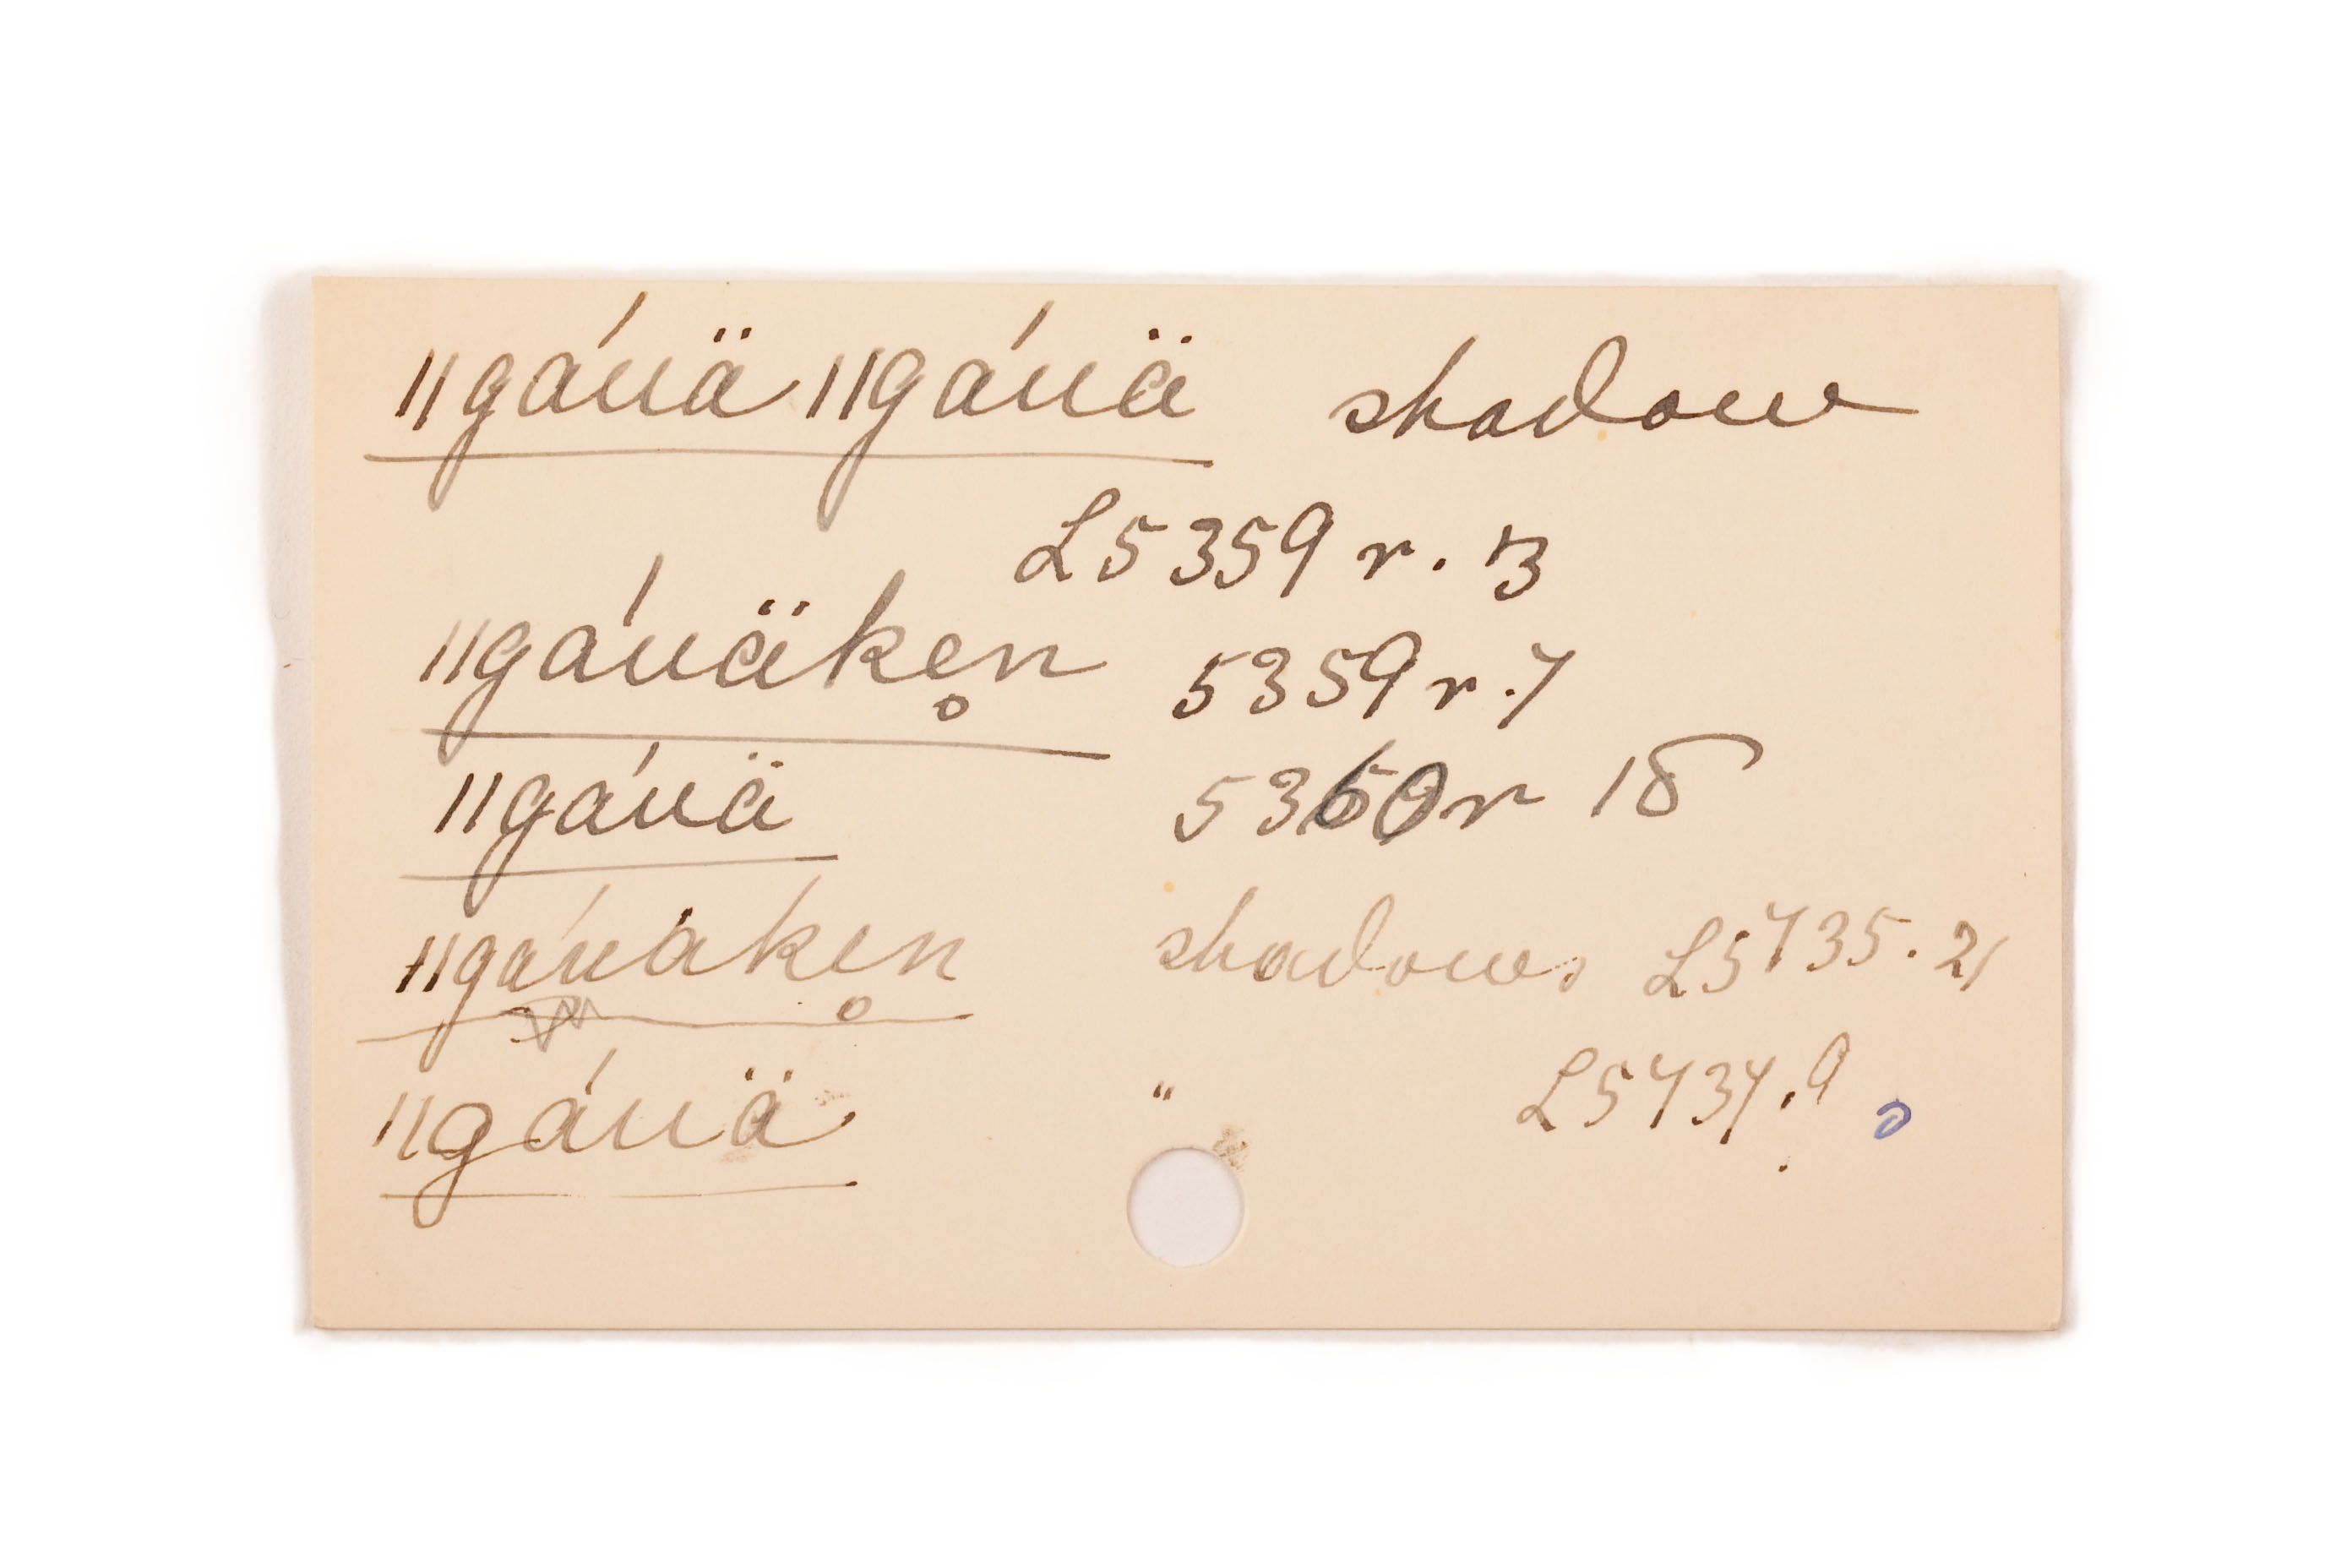 ǁgáuä ǁgáuä shadow
L5359 r. 3
ǁgáuäken̥ 5359 r. 7
ǁgáuä 5360 r 18
ǁgáuaken̥ shadows L5435. 21
ǁgáuä " L5434. 9